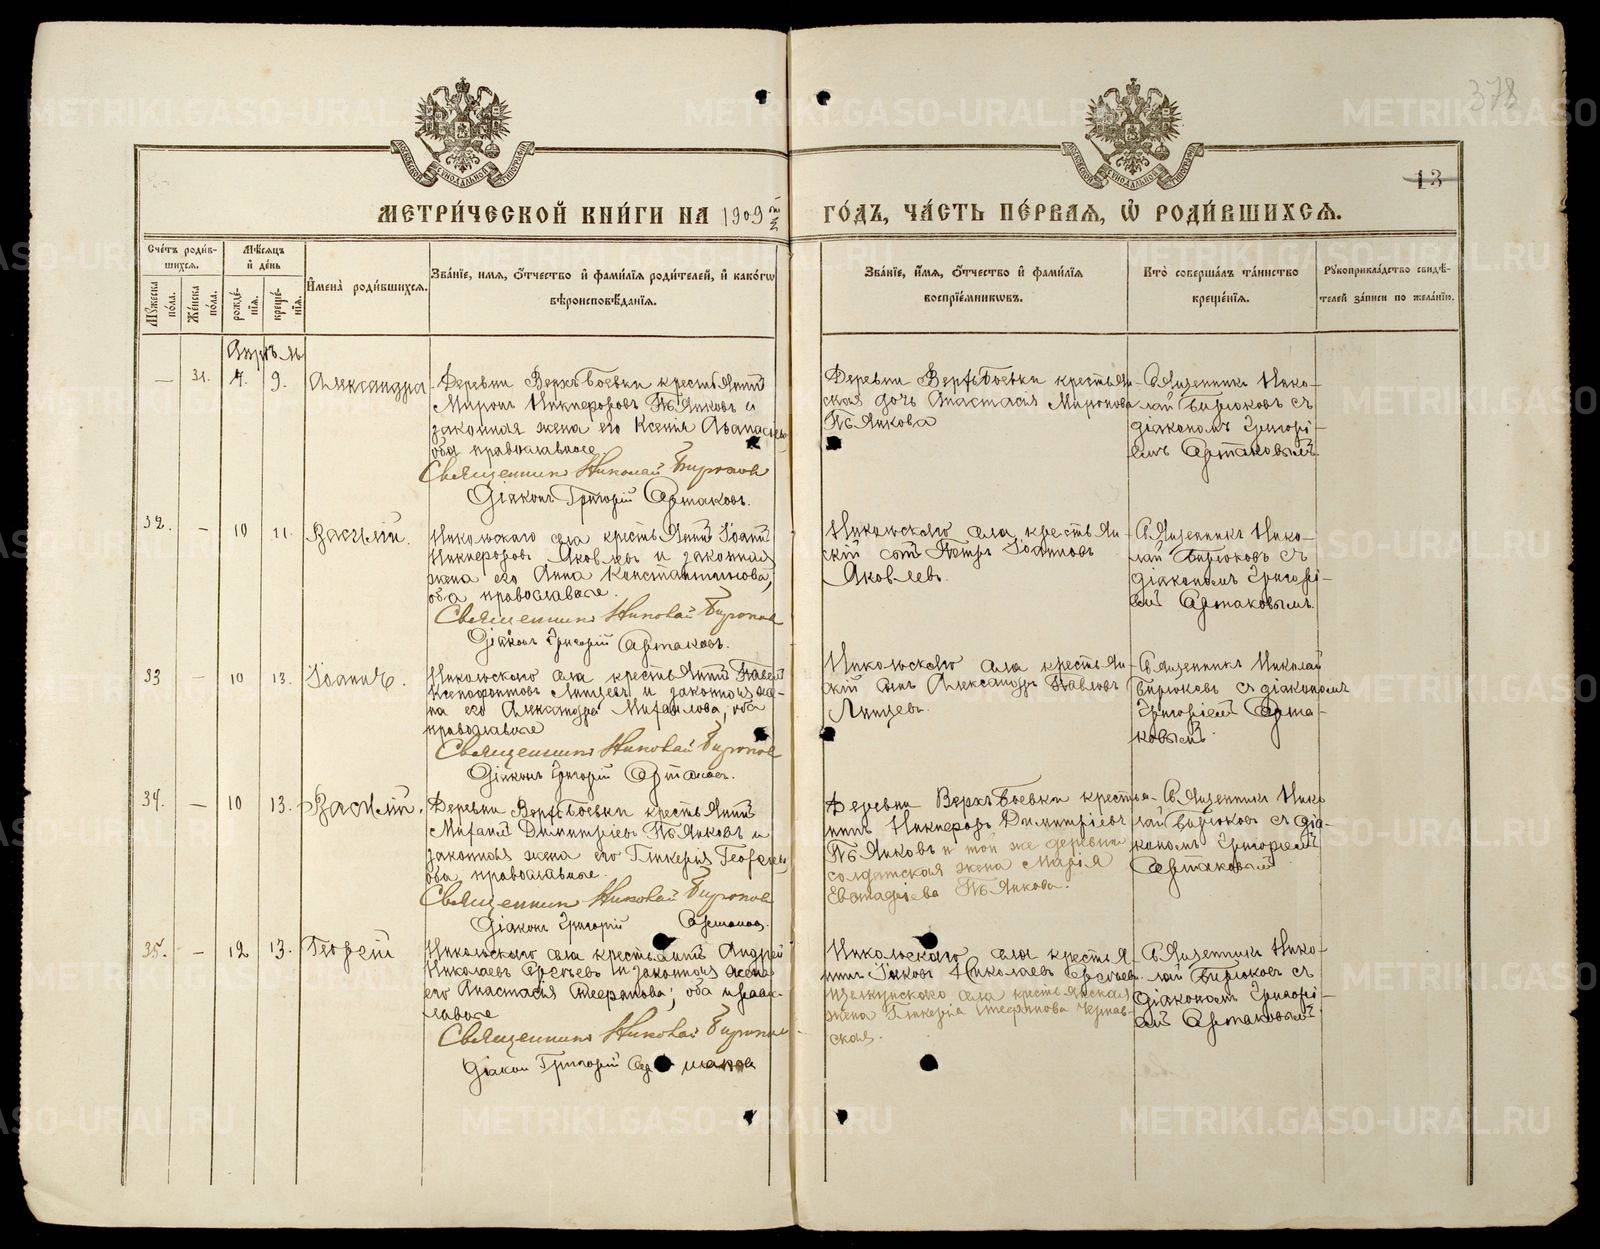 378
13
МЕТРИ́ЧЕСКОЙ КНИ́ГИ НА 1909 й
ГО́ДЪ, ЧА́СТЬ ПЕ́РВАЯ, Ѡ РОДИ́ВШИХСЯ.
Сче́тъ роди́в-
шихся.
Мѣ́сяцъ
и́ де́нь
Му́жеска по́ла.
Же́нска по́ла.
рожде́-
нія.
креще́-
нія.
И҆мена̀ роди́вшихся.
Зва́ніе, и҆́мя, ѻ҆́тчество и҆ фами́лія роди́телей, и҆ како́гѡ
вѣроисповѣ́данія.
Зва́ніе, и҆́мя, ѻ҆́тчество и҆ фами́лія
воспріе́мникѡвъ.
Кто̀ соверша́лъ та́инство
креще́нія.
Рꙋкоприкла́дство свидѣ́-
телей за́писи по жела́нію.
Апрѣль
— 31. 7. 9. Александра
Деревни Верхъ Боевки крестьянинъ
Миронъ Никифоровъ Пьянковъ и
законная жена его Ксенія
оба православные
Священникъ Николай Бирюковъ
Діаконъ Григорій Артаковъ.
Деревни Верхъ Боевки крестьян-
ская дочь Анастасія Миронова
Пьянкова
Священникъ Нико-
лай Бирюковъ съ
діакономъ Григорі-
емъ Артаковымъ
32. — 10 11. Василій.
Никольскаго села крестьянинъ Іоаннъ
Никифоровъ Яковлевъ и законная
жена его Анна Константинова,
оба православные.
Священникъ Николай Бирюковъ
Діаконъ Григорій Артаковъ.
Никольскаго села крестьян-
скій сынъ Петръ Іоанновъ
Яковлевъ.
Священникъ Нико-
лай Бирюковъ съ
діакономъ Григорі-
емъ Артаковымъ.
33 — 10 13. Іоаннъ.
Никольскаго села крестьянинъ Павелъ
Ксенофонтовъ и законная же-
на его Александра Михаилова, оба
православные
Священникъ Николай Бирюковъ
Діаконъ Григорій Артаковъ.
Никольскаго села крестьян-
скій сынъ Александръ Павловъ
Священникъ Николай
Бирюковъ съ діакономъ
Григоріемъ Арта-
ковымъ
34. — 10 13. Василій.
Деревни Верхъ Боевки крестьянинъ
Михаилъ Димитріевъ Пьянковъ и
законная жена его Гликерія
оба православные.
Священникъ Николай Бирюковъ
Діаконъ Григорій Артаковъ.
Деревни Верхъ Боевки крестья-
нинъ Никифоръ Димитріевъ
Пьянковъ и той же деревни
солдатская жена Марія
Пьянкова.
Священникъ Нико
лай Бирюковъ съ діа-
кономъ Григоріемъ
Артаковымъ
35. — 12 13. Георгій
Никольскаго села крестьянинъ Андрей
Николаевъ и законная жена
его Анастасія Стефанова; оба право-
славные
Священникъ Николай Бирюковъ
Діаконъ Григорій Артаковъ
Никольскаго села крестья-
нинъ Іаковъ Николаевъ
села крестьянская
жена Гликерія Стефанова Черав-
ская.
Священникъ Нико-
лай Бирюковъ съ
діакономъ Григорі-
емъ Артаковымъ
METRIKI.GASO-URAL.RU